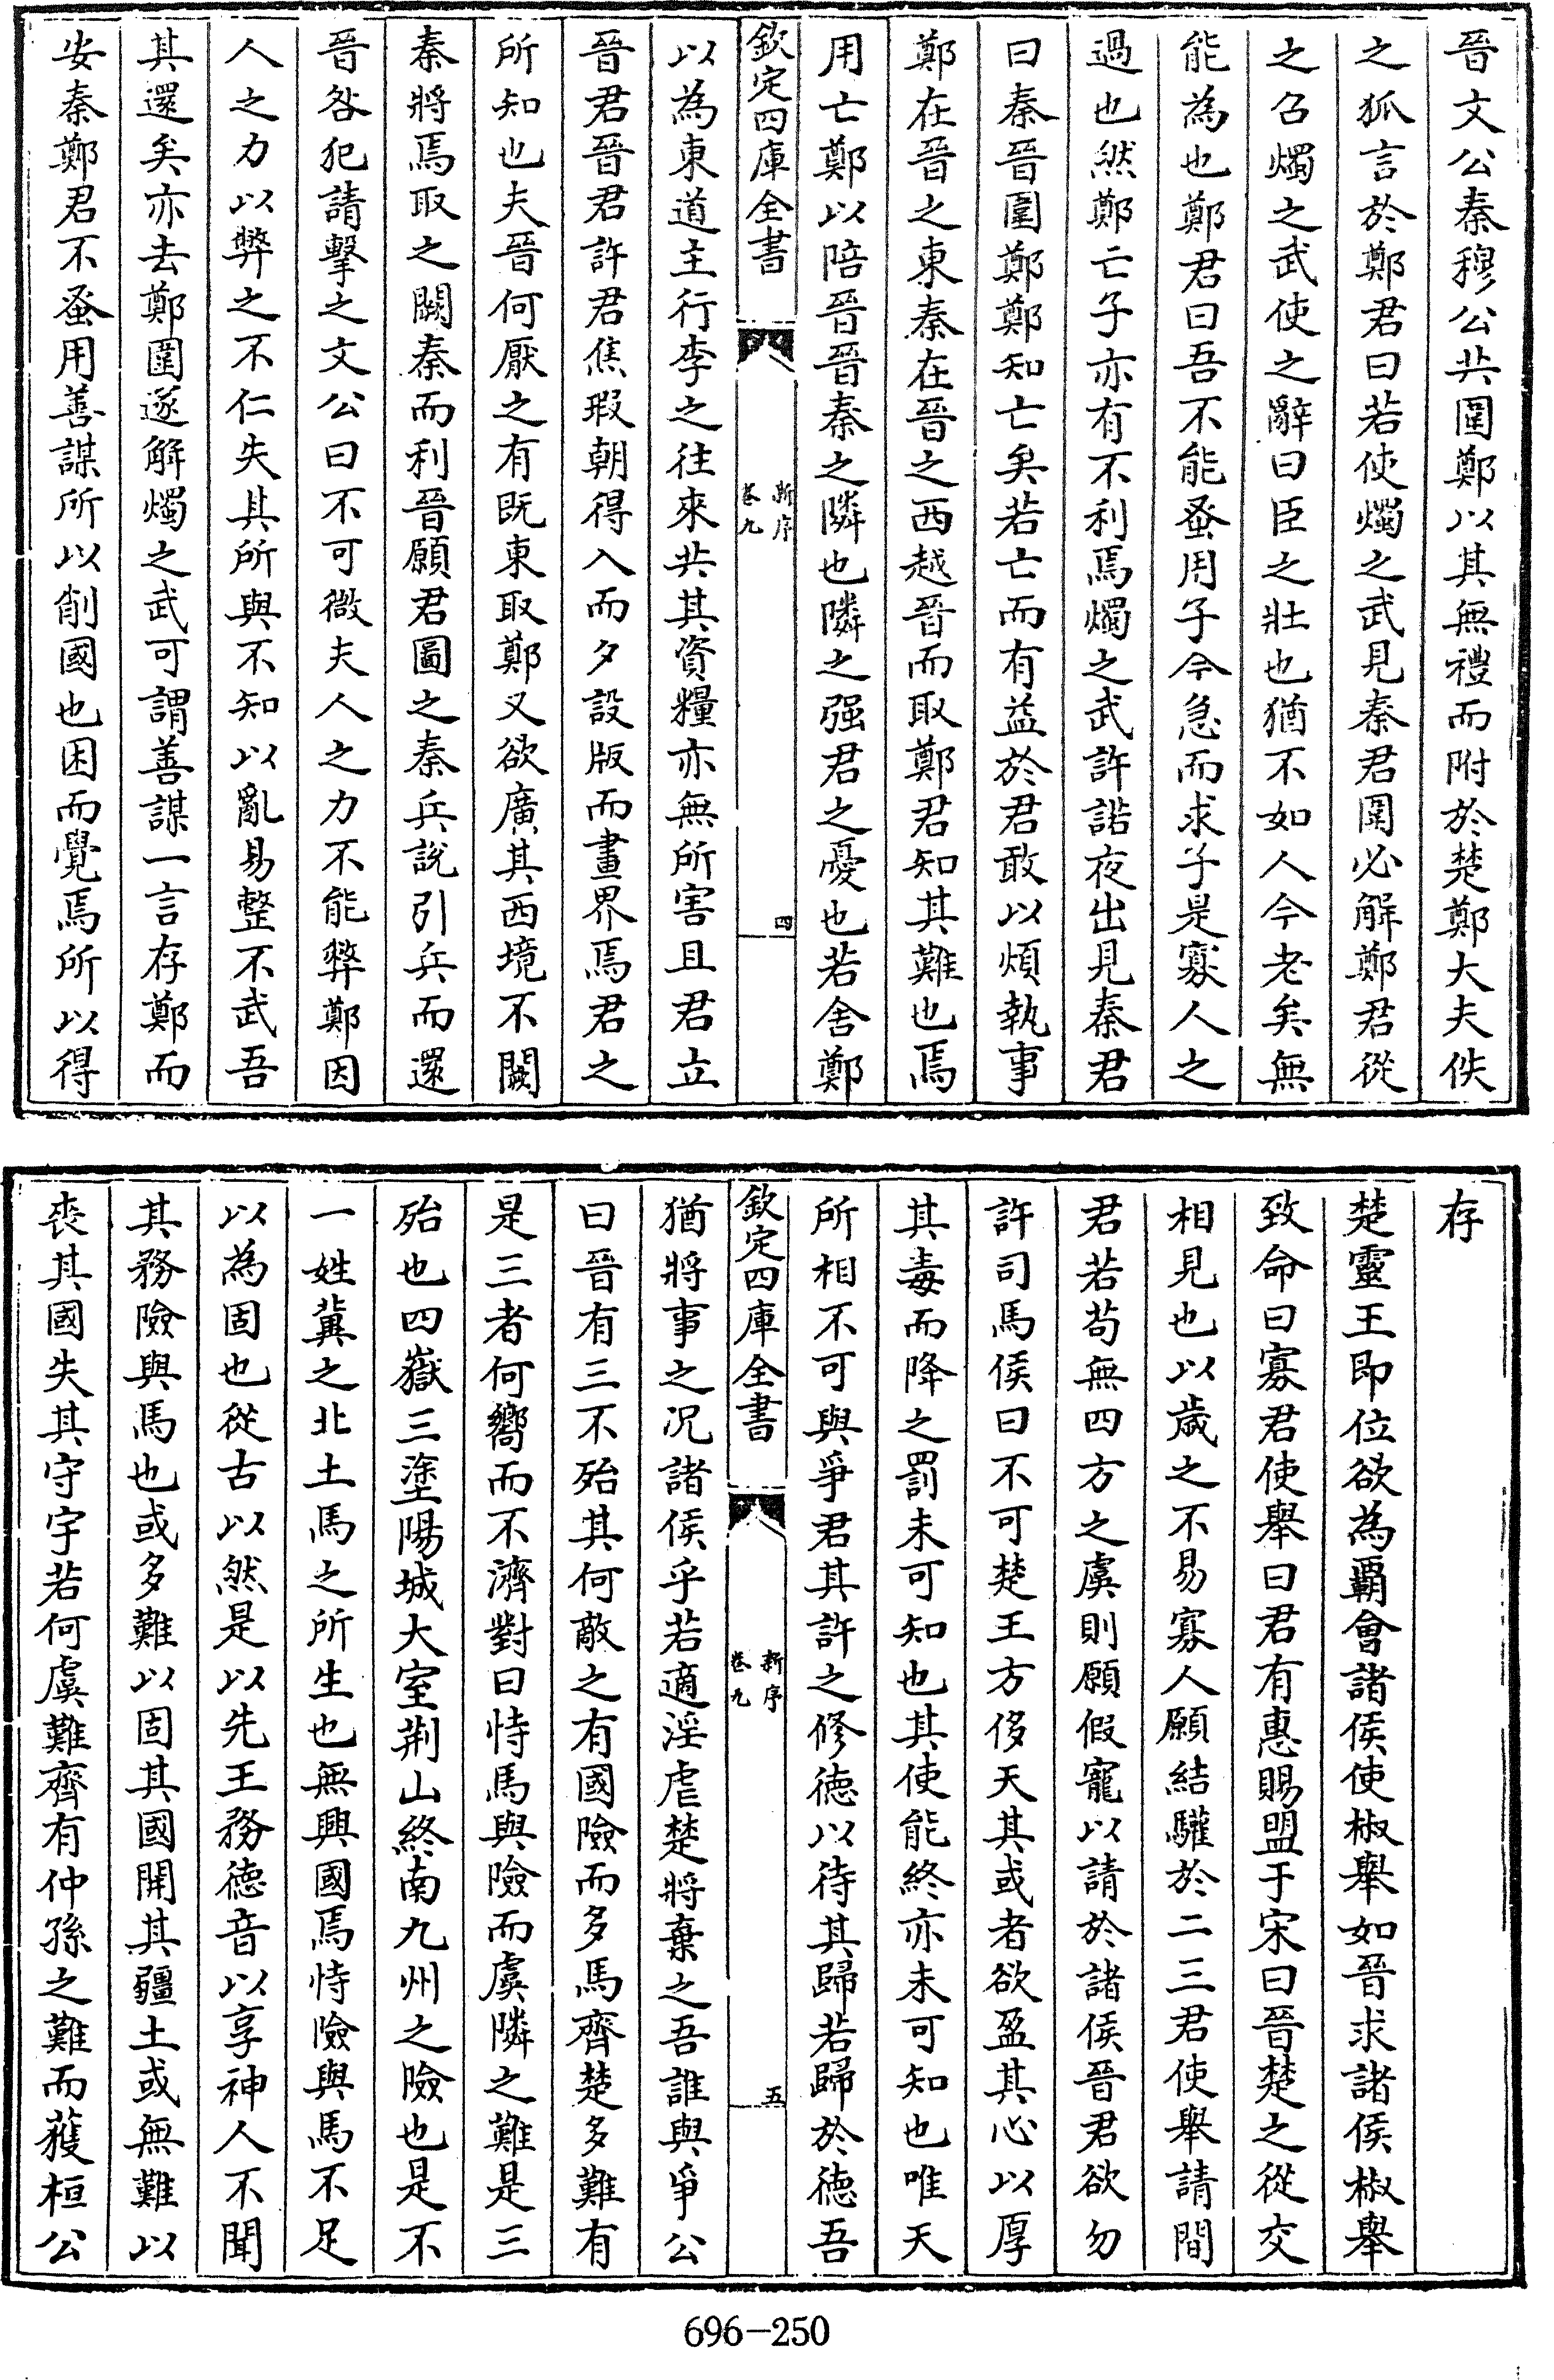 晉文公秦穆公共圍鄭以其無禮而附於楚鄭大夫佚
之狐言於鄭君曰若使燭之武見秦君圍必解鄭君從
之召燭之武使之辭曰臣之壯也猶不如人今老矣無
能為也鄭君曰吾不能蚤用子今急而求子是寡人之
過也然鄭亡子亦有不利焉燭之武許諾夜出見秦君
曰秦晉圍鄭鄭知亡矣若亡而有益於君敢以煩執事
鄭在晉之東秦在晉之西越晉而取鄭君知其難也焉
用亡鄭以陪晉晉秦之隣也隣之强君之憂也若舍鄭
欽定四庫全書
新序
卷九
四
以為東道主行李之往來共其資糧亦無所害且君立
晉君晉君許君焦瑕朝得入而夕設版而畫界焉君之
所知也夫晉何厭之有既東取鄭又欲廣其西境不闕
秦將焉取之闕秦而利晉願君圖之秦兵說引兵而還
晉咎犯請擊之文公曰不可微夫人之力不能弊鄭因
人之力以弊之不仁失其所與不知以亂易整不武吾
其還矣亦去鄭圍遂解燭之武可謂善謀一言存鄭而
安秦鄭君不蚤用善謀所以削國也困而覺焉所以得
存
楚靈王即位欲為霸會諸侯使椒舉如晉求諸侯椒舉
致命曰寡君使舉曰君有惠賜盟于宋曰晉楚之從交
相見也以歲之不易寡人願結驩於二三君使舉請間
君若苟無四方之虞則願假寵以請於諸侯晉君欲勿
許司馬侯曰不可楚王方侈天其或者欲盈其心以厚
其毒而降之罰未可知也其使能終亦未可知也唯天
所相不可與爭君其許之修德以待其歸若歸於德吾
欽定四庫全書
新序
卷九
五
猶將事之况諸侯乎若適淫虐楚將棄之吾誰與爭公
曰晉有三不殆其何敵之有國險而多馬齊楚多難有
是三者何嚮而不濟對曰恃馬與險而虞隣之難是三
殆也四嶽三塗陽城大室荆山終南九州之險也是不
一姓冀之北土馬之所生也無興國焉恃險與馬不足
以為固也從古以然是以先王務德音以享神人不聞
其務險與馬也或多難以固其國開其疆土或無難以
喪其國失其守宇若何虞難齊有仲孫之難而蒦桓公
696-250